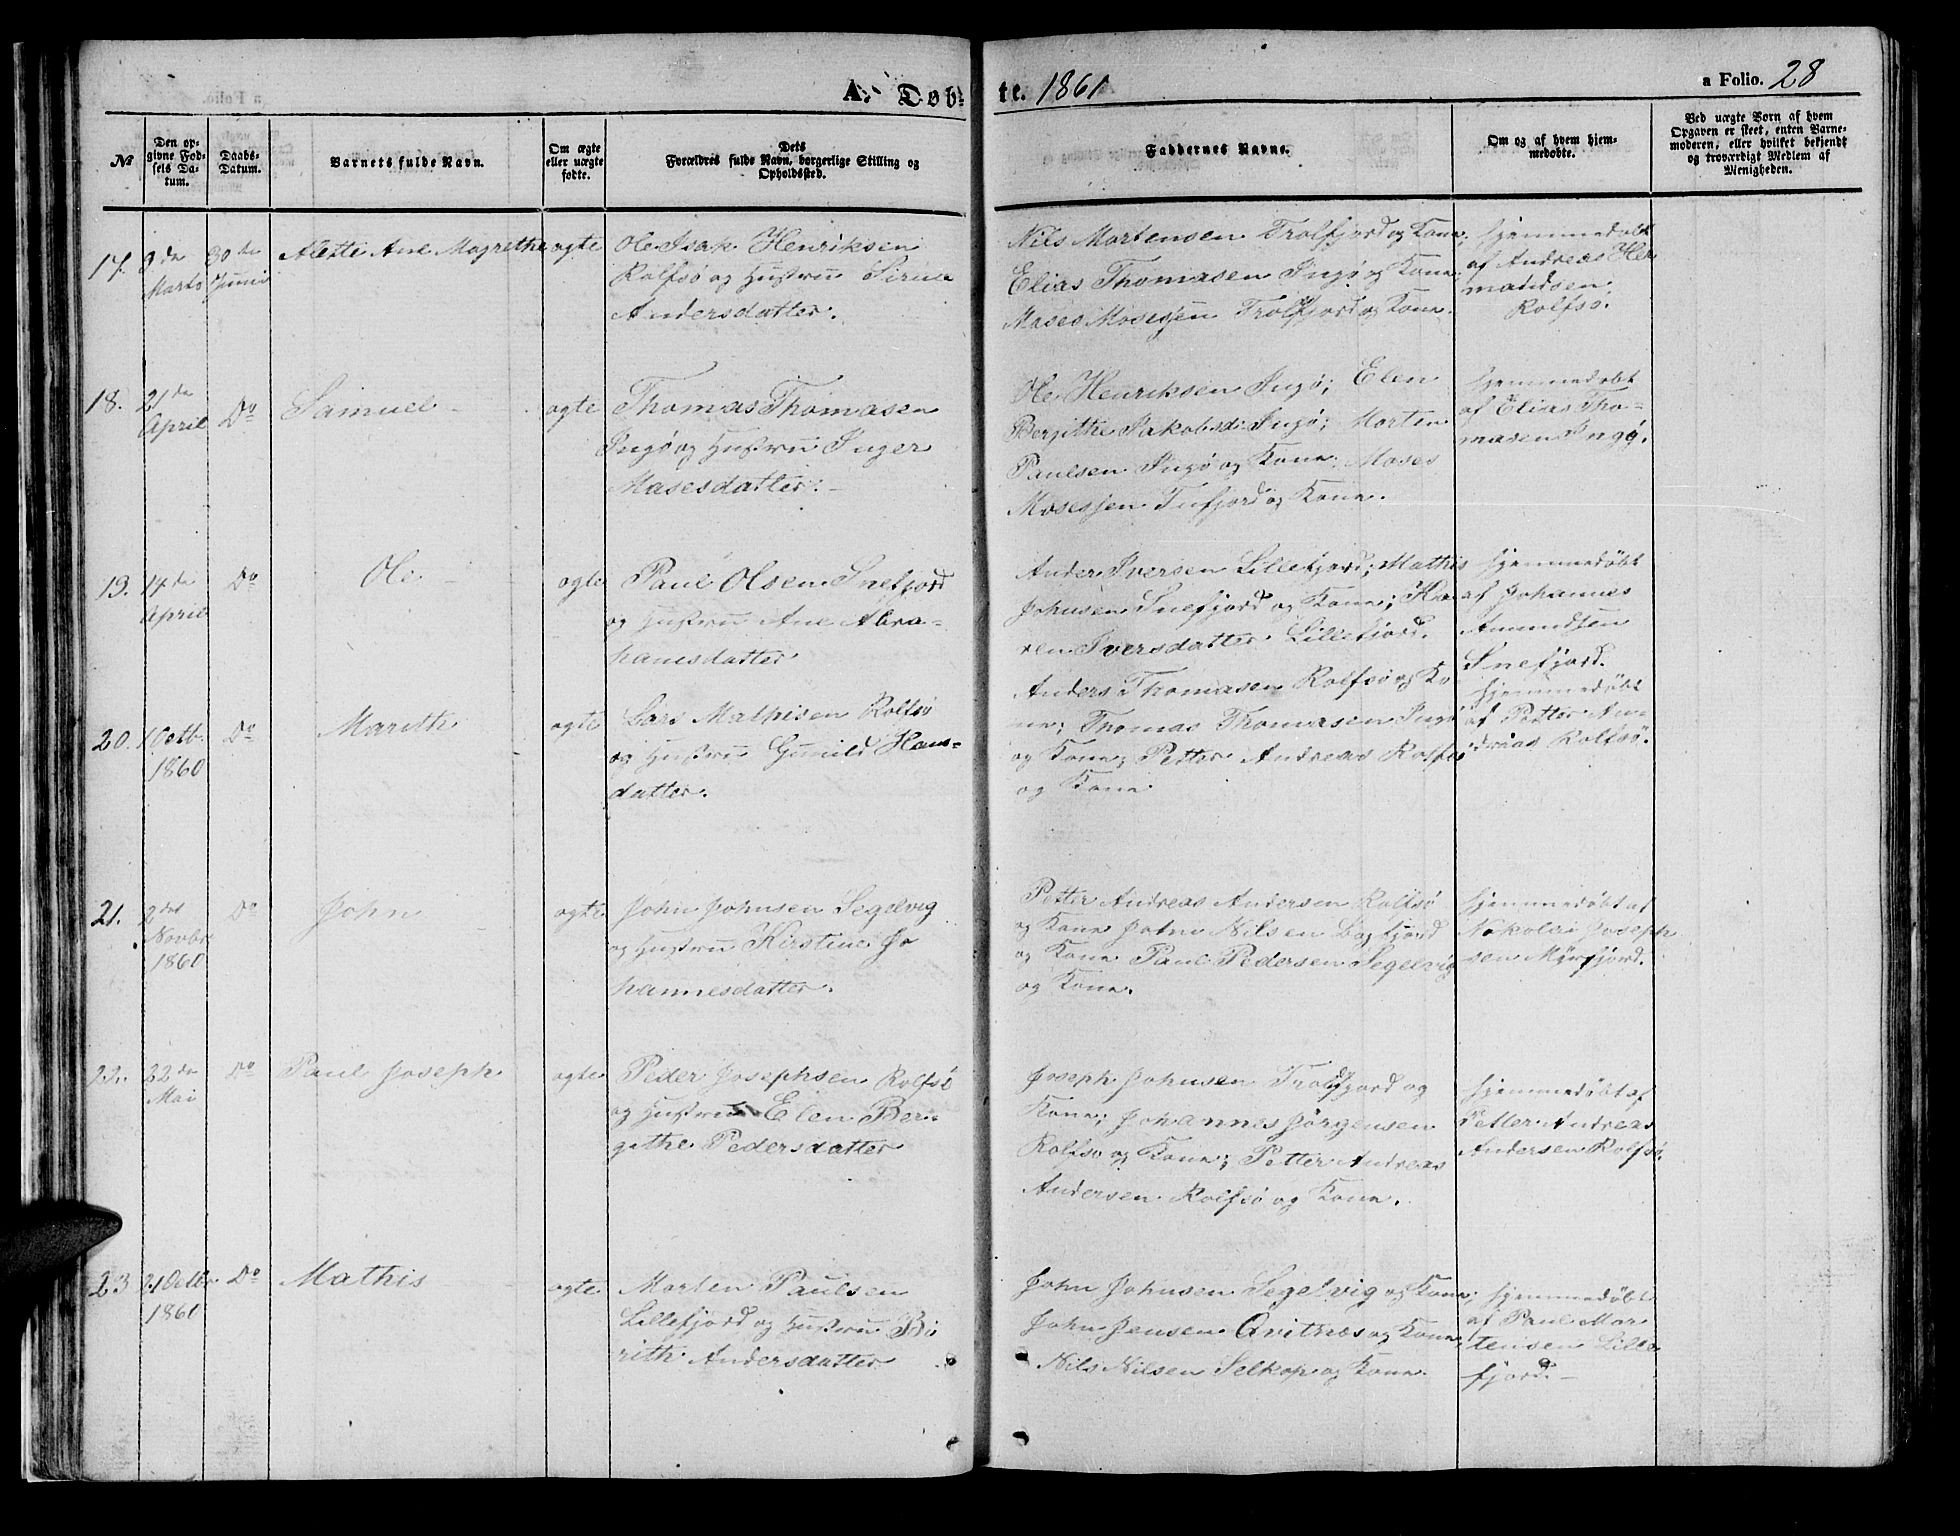 A. Døb-
te. 1861
a Folio. 28
No
Den op-
givne Fød-
sels Da-
tum.
Daabs-
Datum.
Barnets fulde Navn.
Om ægte
eller uægte
fødte.
Dets
Forældres fulde Navn, borgerlige Stilling og
Opholdssted.
Faddernes Navne.
Om og af hvem hjem-
medøbte.
Ved uægte Børn af hvem
Opgaven er skeet, enten Barne-
moderen, eller hvilket bekjendt
og troværdigt Medlem af
Menigheden.
17. 8de Marts
30te Juni
Alette Ane Magrethe
ægte
Ole Isak Henriksen
Rolfsø og Hustru Sirine
Andersdatter.
Nils Mortensen Trolfjord og Kone;
Elias Thomasen Ingø og Kone
Moses Mosesjen Trolfjord og Kone.
hjemmedøbt
af Andreas Her
mandsen
Rolfsø.
18. 21de April
Do
Samuel
ægte
Thomas Thomasen
Ingø og Hustru Inger
Mosesdatter.
Ole Henriksen Ingø; Elen
Bergithe Jakobsd: Ingø; Morten
Paulsen Ingø og Kone; Moses
Mosesjen Tufjord og Kone.
hjemmedøbt
af Elias Tho-
masen Ingø.
19. 14de April
Do
Ole
ægte
Paul Olsen Snefjord
og Hustru Ane Abra-
hamsdatter
Ander Iversen Lillefjord; Mathis
Johnsen Snefjord og Kone; Ka
ren Iversdatter Lillefjord.
hjemmedøbt
af Johannes
Amundsen
Snefjord.
20. 1 Octb. 1860
Do
Marith
ægte
Lars Mathisen Rolfsø
og Hustru Gunild Hans-
datter.
Anders Thomasen Rolfsø og Ko
ne; Thomas Thomasen Ingø
og Kone; Petter Andreas Rolfsø
og Kone
hjemmedøbt
af Petter An-
dreas Rolfsø.
21. 2det Novbr 1860
Do
John
ægte
John Johnsen Segelvig
og Hustru Kirstine Jo
hannesdatter.
Petter Andreas Andersen Rolfsø
og Kone John Nilsen Bagfjord
og Kone Paul Pedersen Segelvig
og Kone.
hjemmedøbt af
Nikolai Joseph
sen Myrfjord.
22. 22de Mai
Do
Paul Joseph
ægte
Peder Josephsen Rolfsø
og Hustru Elen Ber-
githe Pedersdatter
Joseph Johnsen Trolfjord og
Kone; Johannes Jørgensen
Rolfsø og Kone; Petter Andreas
Andersen Rolfsø og Kone.
hjemmedøbt af
Petter Andreas
Andersen Rolfsø.
23 21 Octbr. 1860
Do
Mathis
ægte
Morten Paulsen
Lillefjord og Hustru Bi
rith Andersdatter
John Johnsen Segelvig og Kone;
John Jensen Qvitnæs og Kone,
Nils Nilsen Selkop og Kone
hjemmedøbt
af Paul Mor
tensen Lille
fjord.